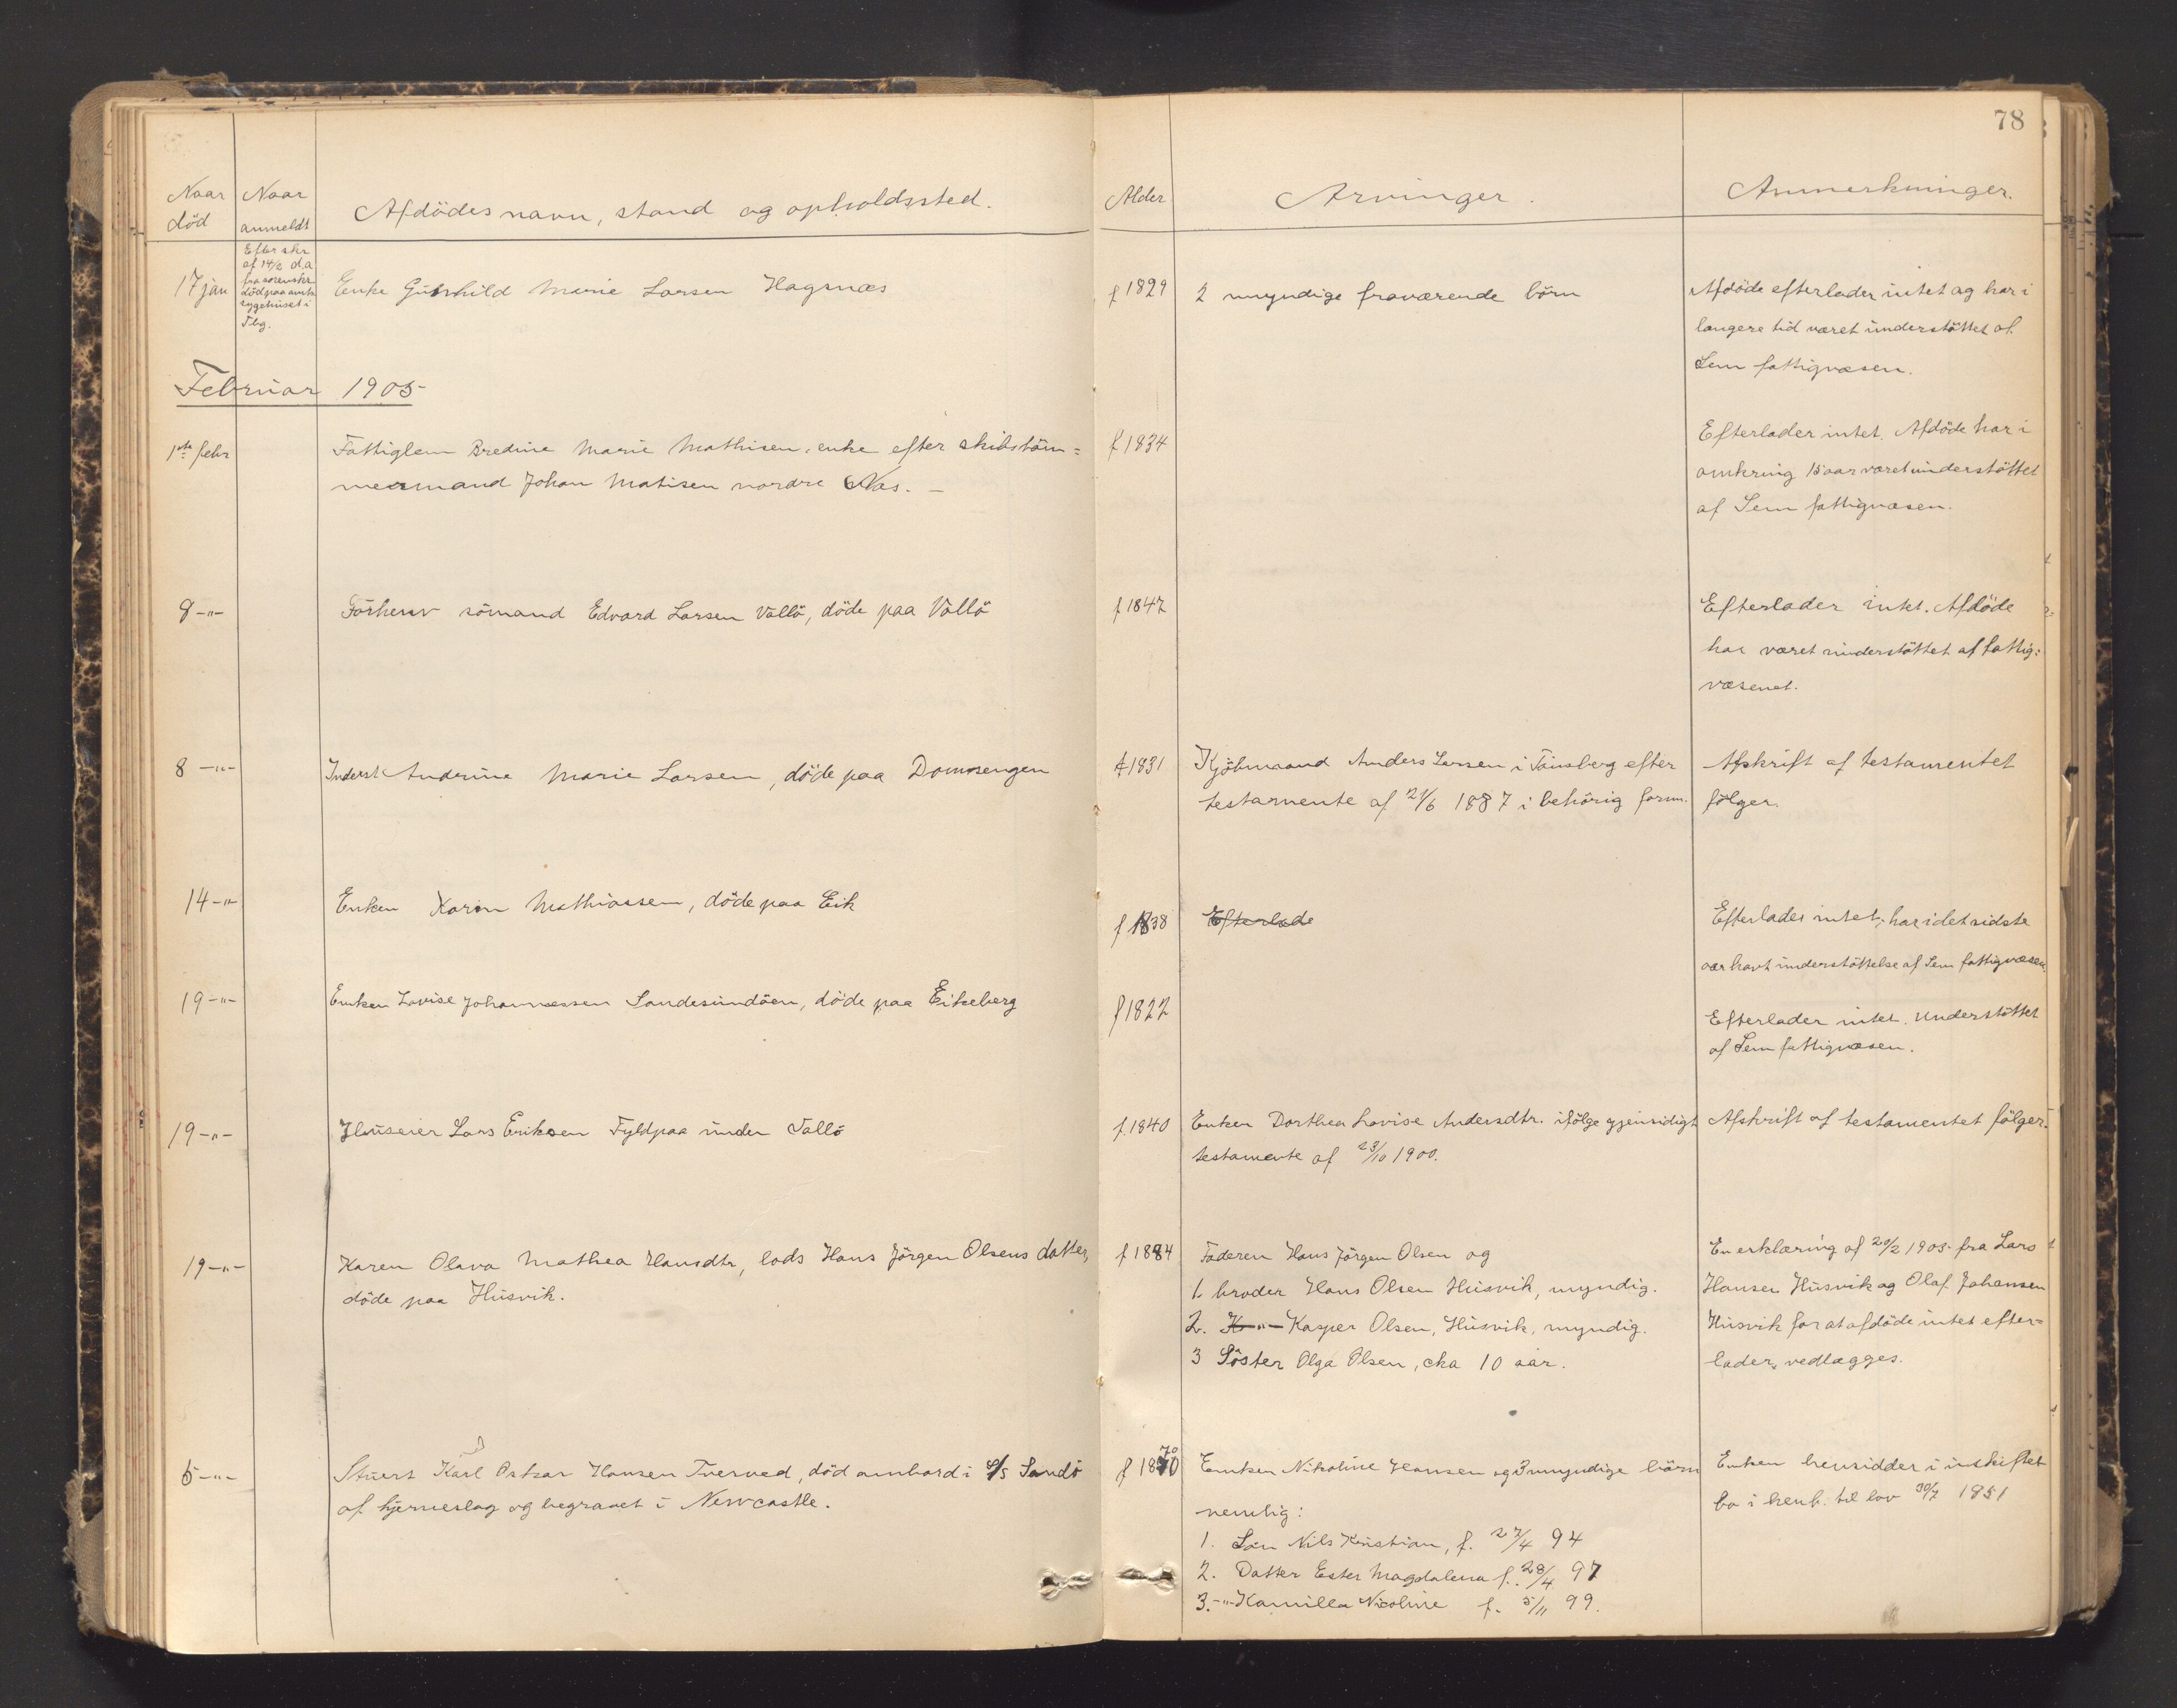 78
Naar død
Naar anmeldt
Afdödes navn, stand og opholdssted.
Alder
Arvinger.
Anmerkninger.
17 jan
Efter skr
af 14/2 d.a
fra sorenskr
död paa amts
sygehuset i
Tbg.
Enke Gunhild Marie Larsen Hagsnæs
f 1829
2 myndige fraværende börn
Afdöde efterlader intet og har i
længere tid været understöttet af
Sem fattigvæsen.
Februar 1905
1ste febr
Fattiglem Bredine Marie Mathisen, enke efter skibstöm=
mermand Johan Matisen nordre Næs. –
f 1834
Efterlader intet. Afdöde har i
omkring 15 aar været understöttet
af Sem fattigvæsen.
8 –"–
Forhenv sömand Edvard Larsen Vallö, döde paa Vallö
f 1847
Efterlader intet. Afdöde
har været understöttet af fattig:
væsenet.
8 –"–
Inderst Andrine Marie Larsen, döde paa Dommengen
f 1831
Kjöbmand Anders Larsen i Tönsberg efter
testamente af 21/6 1887 i behörig form.
Afskrift af testamentet
fölger.
14 –"–
Enken Karen Mathiassen, döde paa Eik
f 1838
Efterlade
Efterlader intet; har i det sidste
aar havt understöttelse af Sem fattigvæsen.
19 –"–
Enken Lovise Johannessen Sandesundöen, döde paa Eikeberg
f 1822
Efterlader intet. Understöttet
af Sem fattigvæsen.
19 –"–
Huseier Lars Eriksen Fyldpaa under Vallö
f. 1840
Enken Dorthea Lovise Andersdtr. ifölge gjensidigt
testamente af 23/10 1900.
Afskrift af testamentet fölger.
19 –"–
Karen Olava Mathea Hansdtr, lods Hans Jörgen Olsens datter,
döde paa Husvik.
f 1884
Faderen Hans Jörgen Olsen og
1. broder Hans Olsen Husvik, myndig.
2. –"– Kasper Olsen, Husvik, myndig.
3 Söster Olga Olsen, cka 10 aar.
En erklæring af 20/2 1905 fra Lars
Hansen Husvik og Olaf Johansen
Husvik for at afdöde intet efter=
lader, vedlægges.
5 –"–
Stuert Karl Oskar Hansen Tverved, död ombord i S/S Sandö
af hjerneslag og begravet i Newcastle.
f 1870
70
Enken Nikoline Hansen og 3 umyndige börn
nemlig:
1. Sön Nils Kristian, f. 27/4 94
2. Datter Ester Magdalena f. 28/4 97
3. –"– Kamilla Nicoline f. 5/11 99.
Enken hensidder i uskiftet
bo i henh. til lov 30/7 1851